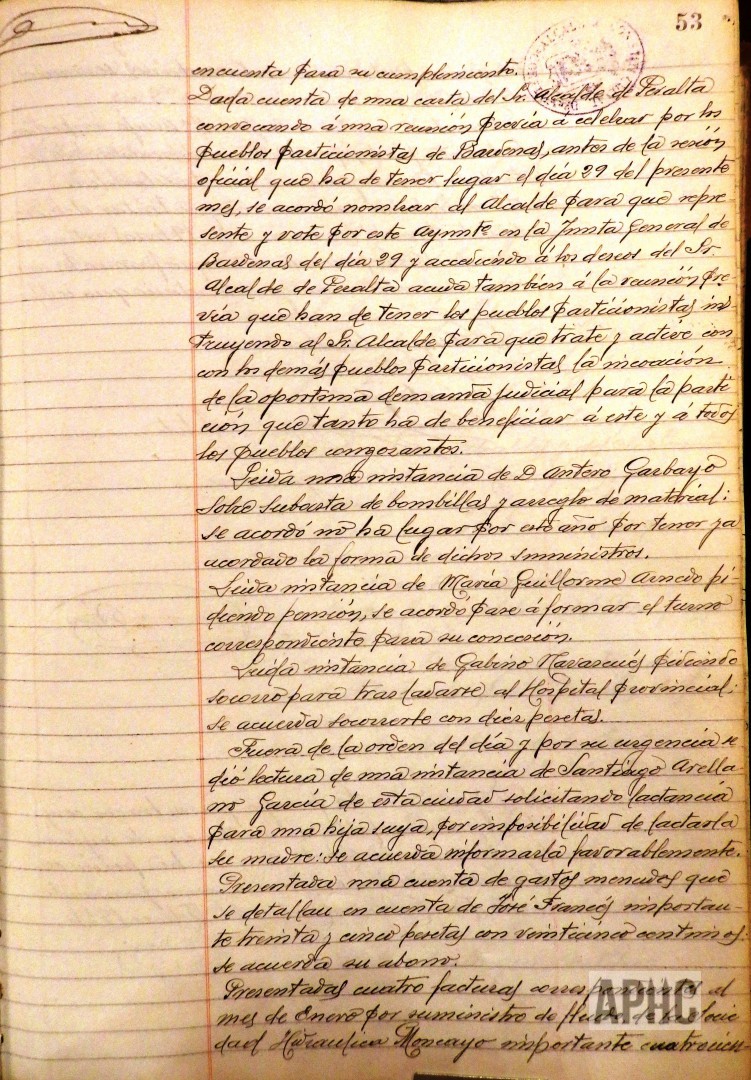 53
en cuenta para su cumplimiento.
Dada cuenta de una carta del Sr. Alcalde de Peralta
convocando á una reunión previa á celebrar por los
pueblos particionistas de Bardenas, antes de la sesión
oficial que ha de tener lugar el día 29 del presente
mes, se acordó nombrar al Alcalde para que repre-
sente y vote por este Aymtº en la Junta General de
Bardenas del día 29 y accediendo á los deseos del Sr.
Alcalde de Peralta acuda también á la reunión pre-
via que han de tener los pueblos particionistas ins-
truyendo al Sr. Alcalde para que trate y active con
con los demás pueblos particionistas la incoación
de la oportuna demanda judicial para la parti-
ción que tanto ha de beneficiar á este y á todos
los pueblos congozantes.
Leida una instancia de D Antero Garbayo
sobre subasta de bombillas y arreglo de material:
se acordó no ha lugar por este año por tener ya
acordado la forma de dichos suministros.
Leida instancia de María Guillorme Arnedo pi-
diendo pensión, se acordó pase á formar el turno
correspondiente para su concesión.
Leida instancia de Gabino Navascués pidiendo
socorro para trasladarse al Hospital provincial:
se acuerda socorrerle con diez pesetas.
Fuera de la orden del día y por su urgencia se
dió lectura de una instancia de Santiago Arella-
no García de esta ciudad solicitando lactancia
para una hija suya, por imposibilidad de lactarla
su madre: se acuerda informarla favorablemente.
Presentada una cuenta de gastos menudos que
se detallan en cuenta de José Francés importan-
te treinta y cinco pesetas con veinticinco centimos:
se acuerda su abono.
Presentadas cuatro facturas correspondientes al
mes de Enero por suministro de fluido de la Socie
dad Hidraulica Moncayo importante cuatrocien-
APHC